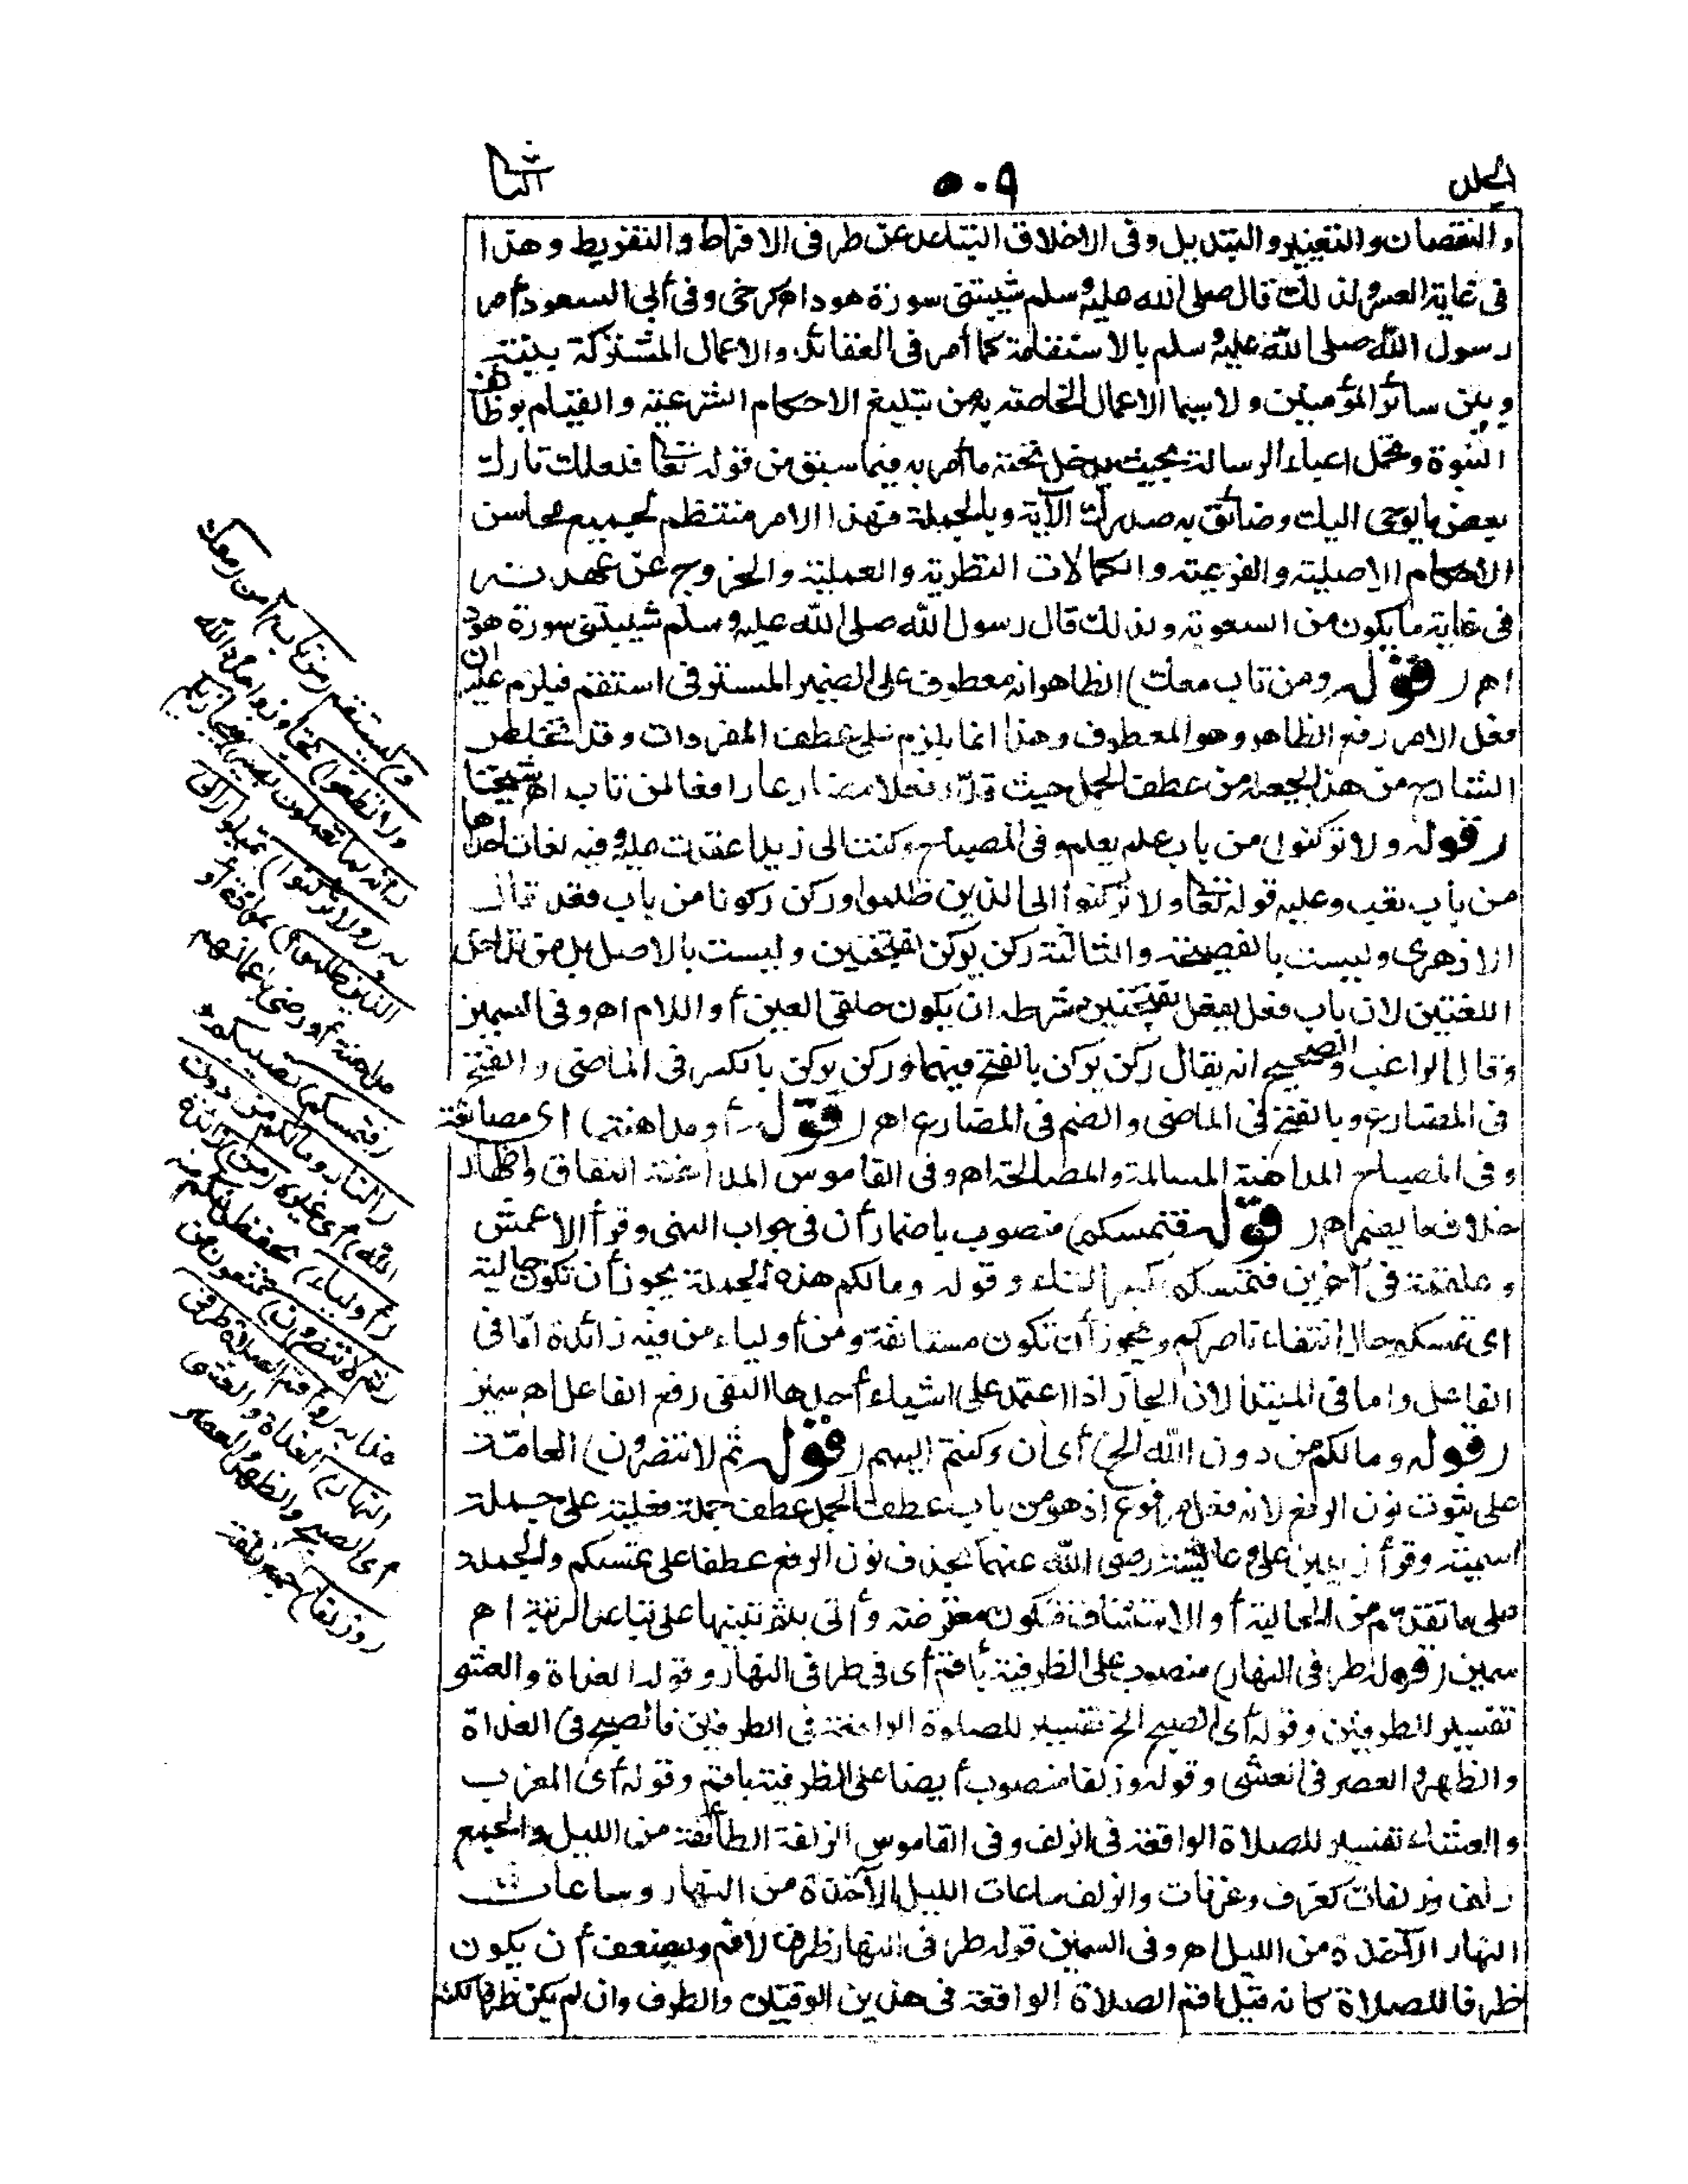 الجلد
٥٠٩
الثانى
والنقصان والتغيير والتبديل وفى الاخلاق التباعد عن طرفى الافراط والتفريط وهذا
فى غاية العسر ولذلك قال صلى الله عليه وسلم شيبتنى سورة هود اه كرخى وفى أبى السعود أمر
رسول الله صلى الله عليه وسلم بالاستقامة كما أمر فى العقائد والاعمال المشتركة بينه
وبين سائر المؤمنين ولا سيما الاعمال الخاصة به من تبليغ الاحكام الشرعية والقيام بوظائف
النبوة وتحمل اعباء الرسالة بحيث يدخل تحته ما أمر به فيما سبق من قوله تعالى فلعلك تارك
بعض ما يوحى اليك وضائق به صدرك الآية وبالجملة فهذا الامر منتظم لجميع محاسن
الاحكام الاصلية والفرعية والكمالات النظرية والعملية والخروج عن عهدته
فى غاية ما يكون من الصعوبة ولذلك قال رسول الله صلى الله عليه وسلم شيبتنى سورة هود
اه (قوله ومن تاب معك) الظاهر انه معطوف على الضمير المستتر فى استقم فيلزم عليه ان
فعل الامر رفع الظاهر وهو المعطوف وهذا انما يلزم على عطف المفردات وقد تخلص
الشارح من هذا بجعله من عطف الجمل حيث قدّر فعلا مضارعا رافعا لمن تاب اه شيخنا
(قوله ولا تركنوا) من باب علم يعلم وفى المصباح ركنت الى زيد اعتمدت عليه وفيه لغات احدها
من باب تعب وعليه قوله تعالى ولا تركنوا الى الذين ظلموا وركن ركونا من باب قعد قال
الازهرى وليست بالفصيحة والثالثة ركن يركن بفتحتين وليست بالاصل بل من تداخل
اللغتين لان باب فعل يفعل بفتحتين شرطه ان يكون حلقى العين أو اللام اه وفى السمين
وقال الراغب والصحيح انه يقال ركن يركن بالفتح فيهما وركن يركن بالكسر فى الماضى والفتح
فى المضارع وبالفتح فى الماضى والضم فى المضارع اه (قوله أو مداهنة) اى مصانعة
وفى المصباح المداهنة المسالمة والمصالحة اه وفى القاموس المداهنة النفاق واظهار
خلاف ما يضمر اه (قوله فتمسكم) منصوب باضمار أن فى جواب النهى وقرأ الاعمش
وعلقمة فى آخرين فتمسكم بكسر التاء وقوله ومالكم هذه الجملة يجوز أن تكون حالية
اى تمسكم حال انتفاء ناصركم ويجوز أن تكون مستانفة ومن أولياء من فيه زائدة امّا فى
الفاعل واما فى المبتدأ لان الجارّ اذا اعتمد على اشياء أحدها النفى رفع الفاعل اه سمين
(قوله ومالكم من دون الله الخ) أى ان ركنتم اليهم (قوله ثم لا تنصرون) العامّة
على ثبوت نون الرفع لانه فعل مرفوع اذ هو من باب عطف الجمل عطف جملة فعلية على جملة
اسمية وقرأ زيد بن على وعائشة رضى الله عنهما بحذف نون الرفع عطفا على تمسكم والجملة
على ما تقدّم من الحالية أو الاستئناف فتكون معترضة وأتى بثم تنبيها على تباعد الرتبة اه
سمين (قوله طرفى النهار) منصوب على الظرفية بأقم أى فى طرفى النهار وقوله الغداة والعشى
تفسير للطرفين وقوله أى الصبح الخ تفسير للصلوة الواقعة فى الطرفين فالصبح فى الغداة
والظهر والعصر فى العشى وقوله وزلفا منصوب أيضا على الظرفية باقم وقوله أى المغرب
والعشاء تفسير للصلاة الواقعة فى الزلف وفى القاموس الزلفة الطائفة من الليل والجمع
زلف وزلفات كغرف وغرفات والزلف ساعات الليل الآخذة من النهار وساعات
النهار الآخذة من الليل اه وفى السمين قوله طرفى النهار ظرف لاقم ويضعف أن يكون
ظرفا للصلاة كانه قيل اقم الصلاة الواقعة فى هذين الوقتين والطرف وان لم يكن ظرفا لكنه
وليستقم (من تاب) آمن (معك
ولا تطغوا) تجاوزوا حدود الله
(انه بما تعملون بصير) فيجازيكم
به (ولا تركنوا) تميلوا (الى
الذين ظلموا) بموادّة أو
مداهنة أو رضى باعمالهم
(فتمسكم) تصيبكم
(النار ومالكم من دون
الله) أى غيره (من) زائدة
(أولياء) يحفظونكم منه
(ثم لا تنصرون) تمنعون من
عذابه (وأقم الصلاة طرفى
النهار) الغداة والعشى
أى الصبح والظهر والعصر
(وزلفا) جمع زلفة